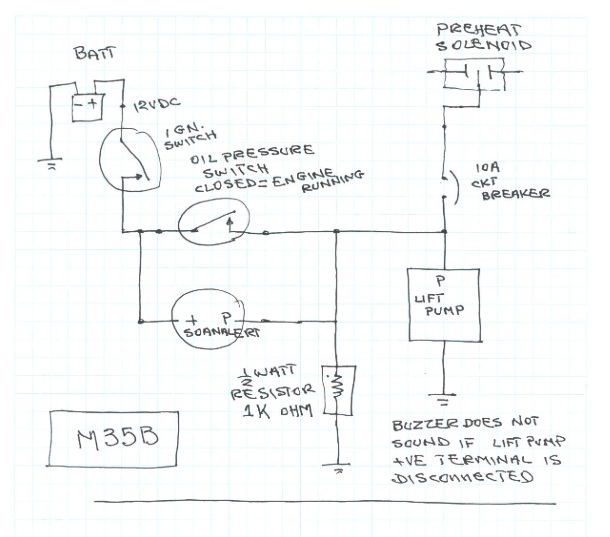 PREHEAT
SOLENOID
BATT
- +
12VDC
IGN.
SWITCH
OIL PRESSURE
SWITCH
CLOSED = ENGINE
RUNNING
10A
CKT
BREAKER
P
LIFT
PUMP
+ P
SOANALERT
1/2 WATT
RESISTOR
1K OHM
M35B
BUZZER DOES NOT
SOUND IF LIFT PUMP
+VE TERMINAL IS
DISCONNECTED